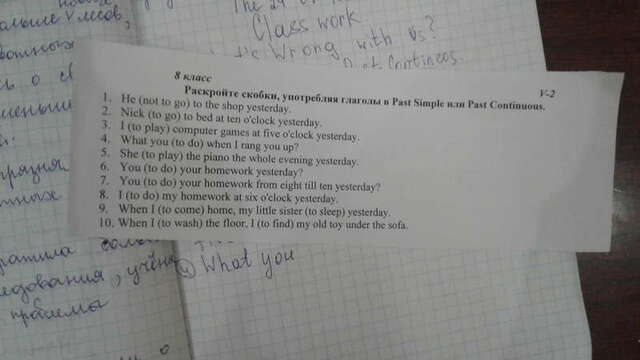 The 24
Class work
Wrong with us?
8 класс
V-2
Раскройте скобки, употребляя глаголы в Past Simple или Past Continuous.
1. He (not to go) to the shop yesterday.
2. Nick (to go) to bed at ten o'clock yesterday.
3. I (to play) computer games at five o'clock yesterday.
4. What you (to do) when I rang you up?
5. She (to play) the piano the whole evening yesterday.
6. You (to do) your homework yesterday?
7. You (to do) your homework from eight till ten yesterday?
8. I (to do) my homework at six o'clock yesterday.
9. When I (to come) home, my little sister (to sleep) yesterday.
10. When I (to wash) the floor, I (to find) my old toy under the sofa.
4 What you
проблемы